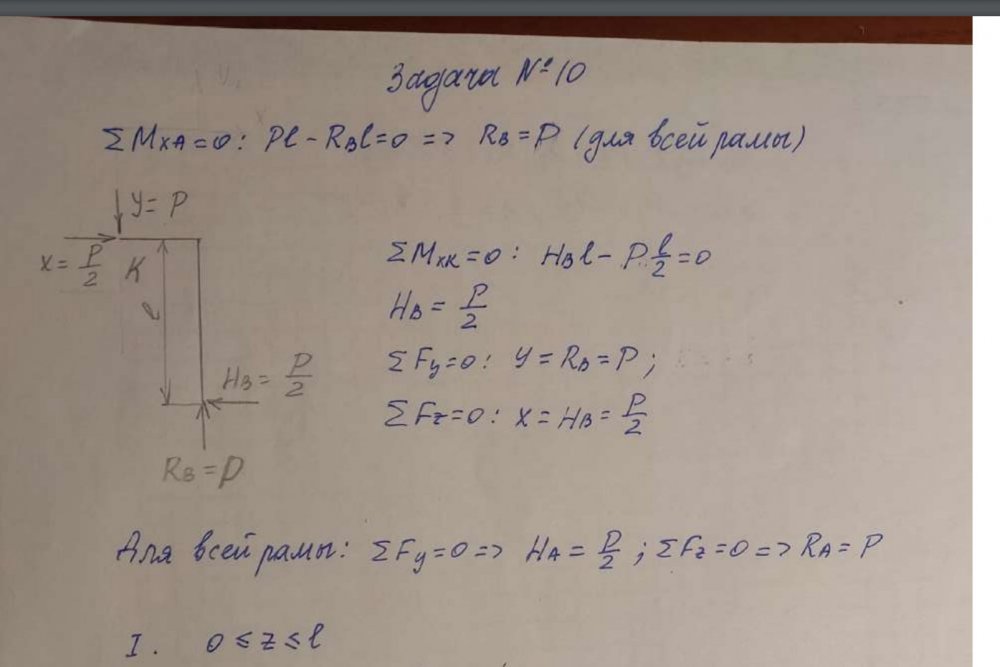 Задача № 10
ΣMxA=0: Pl - RBl=0 => RB=P (для всей рамы)
y= P
x= P/2
K
l
HB= P/2
RB=P
ΣMxK=0: HBl - P l/2=0
HB= P/2
ΣFy=0: y=RB=P;
ΣFz=0: x=HB= P/2
Для всей рамы: ΣFy=0=> HA= P/2; ΣFz=0=> RA=P
I. 0≤z≤l